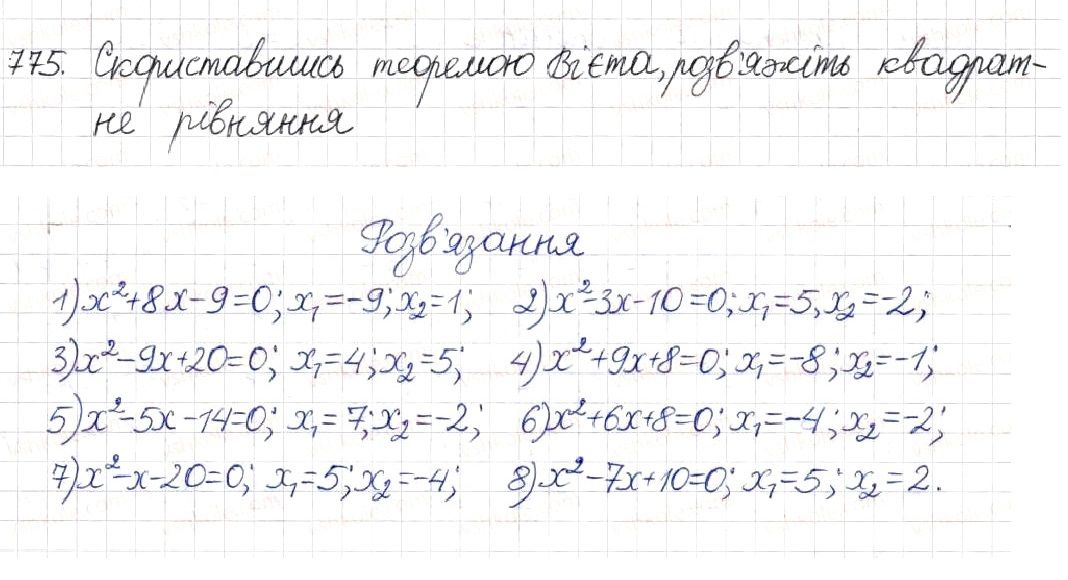 775. Скориставшись теоремою Вієта, розв'яжіть квадрат-
не рівняння
Розв'язання
1) x²+8x-9=0; x₁=-9; x₂=1; 2) x²-3x-10=0; x₁=5, x₂=-2;
3) x²-9x+20=0; x₁=4; x₂=5; 4) x²+9x+8=0; x₁=-8; x₂=-1;
5) x²-5x-14=0; x₁=7; x₂=-2; 6) x²+6x+8=0; x₁=-4; x₂=-2;
7) x²-x-20=0; x₁=5; x₂=-4; 8) x²-7x+10=0; x₁=5; x₂=2.